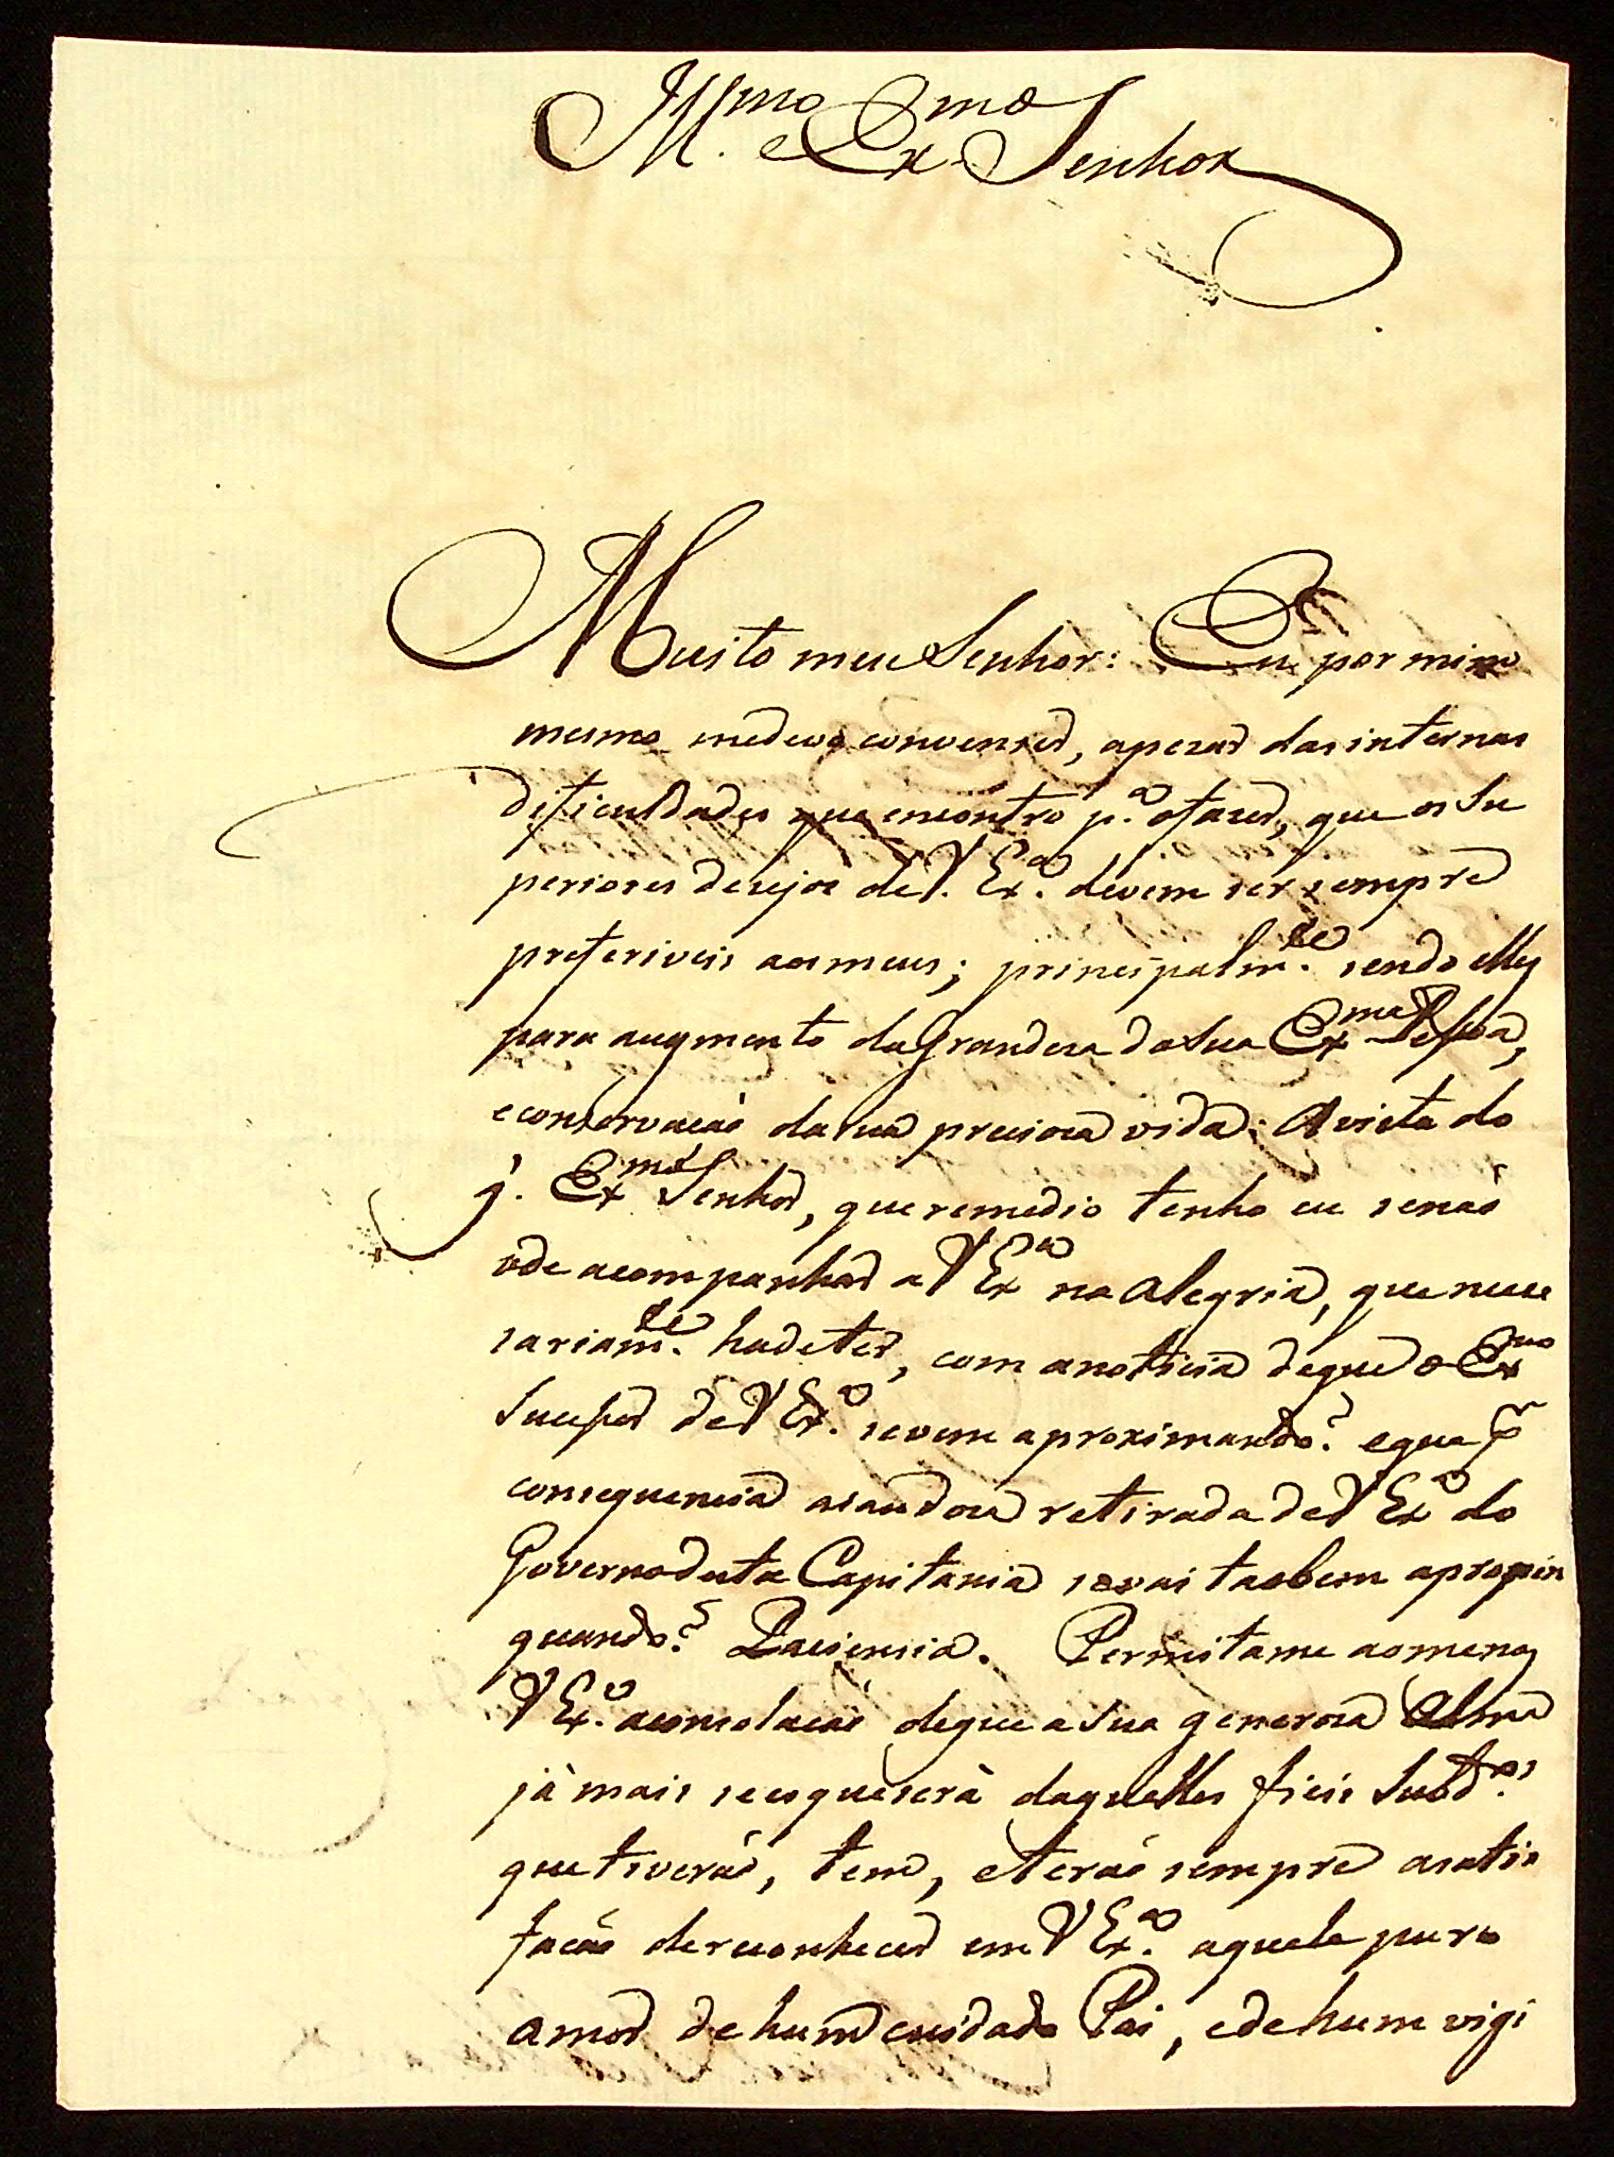 Ill.mo e Ex.mo Senhor
Muito meu Senhor: Eu por mim
mesmo medevo convenser, apezar das internas
dificuldades que encontro p.a ofazer, que os Su
periores dezejos de V. Ex.a devem ser sempre
preferiveis aos meus; principalm.te sendo elles
para augmento da Grandeza da Sua Ex.ma Pessoa,
econservação da sua precioza vida. A vista do
q. Ex.mo Senhor, que remedio tenho eu senaõ
o de acompanhar a V Ex.a na alegria, que nece
sariam.te hadeter, com anoticia deque o Ex.mo
Sucessor de V Ex.a sevem aproximando? eque p.r
consequencia asaudoza retirada de V Ex.a do
Governo desta Capitania sevai taobem apropin
quando? Paciencia. Permitame aomenos
V Ex.a aconsolacaõ deque a Sua generoza Alma
jàmais seesqueserà daquelles fieis Subd.os
que tiveraõ, tem, eteraõ sempre asatis
facaõ dereconhecer em V Ex.a aquele puro
amor de hum cuidado Pai, ede hum vigi